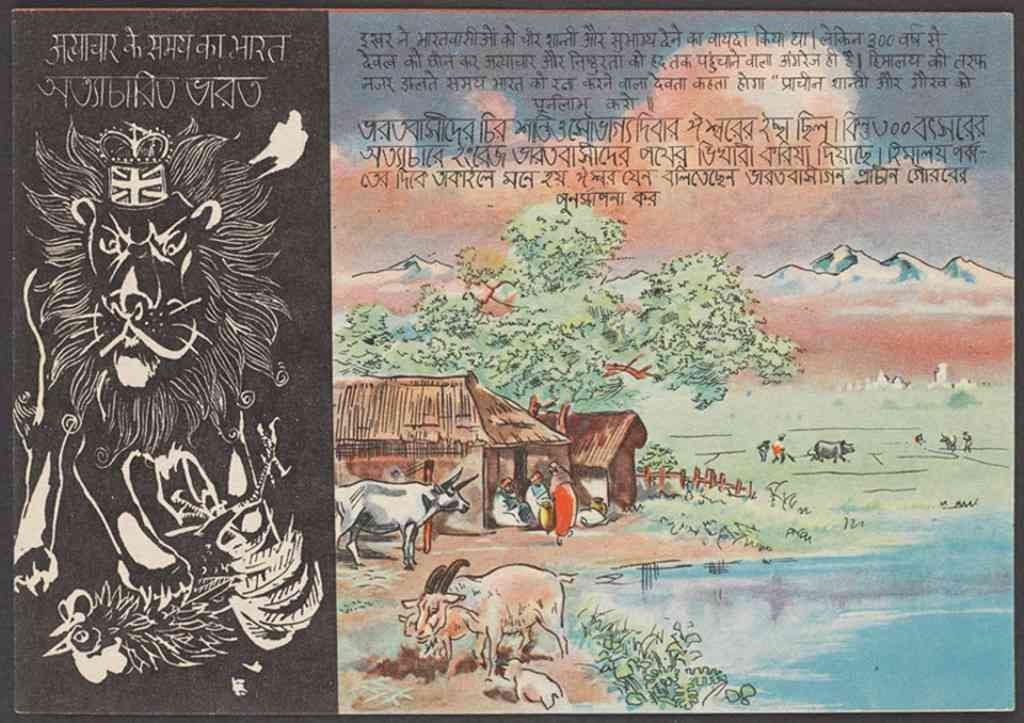 अत्याचार के समय का भारत
অত্যাচারিত ভারত
इश्वर ने भारतवासीओं को चीर शान्ती और सुभाग्य देने का वायदा किया था। लेकिन ३०० वर्ष से
देवल को छीन कर अत्याचार और निष्ठुरता की हद तक पहुंचाने वाला अंगरेज ही है। हिमालय की तरफ
नजर डालते समय भारत को रक्षा करने वाला देवता कहता होगा “प्राचीन शान्ती और गौरव को
पूर्नलाभ करो॥
ভারতবাসীদের চির শান্তি ও সৌভাগ্য দিবার ঈশ্বরের ইচ্ছা ছিল। কিন্তু ৩০০ বৎসরের
অত্যাচারে ইংরেজ ভারতবাসীদের পথের ভিখারী করিয়া দিয়াছে। হিমালয় পর্ব্ব-
তের দিকে তাকাইলে মনে হয় ঈশ্বর যেন বলিতেছেন ভারতবাসীগন প্রাচিন গৌরবের
পুনর্স্থাপনা কর